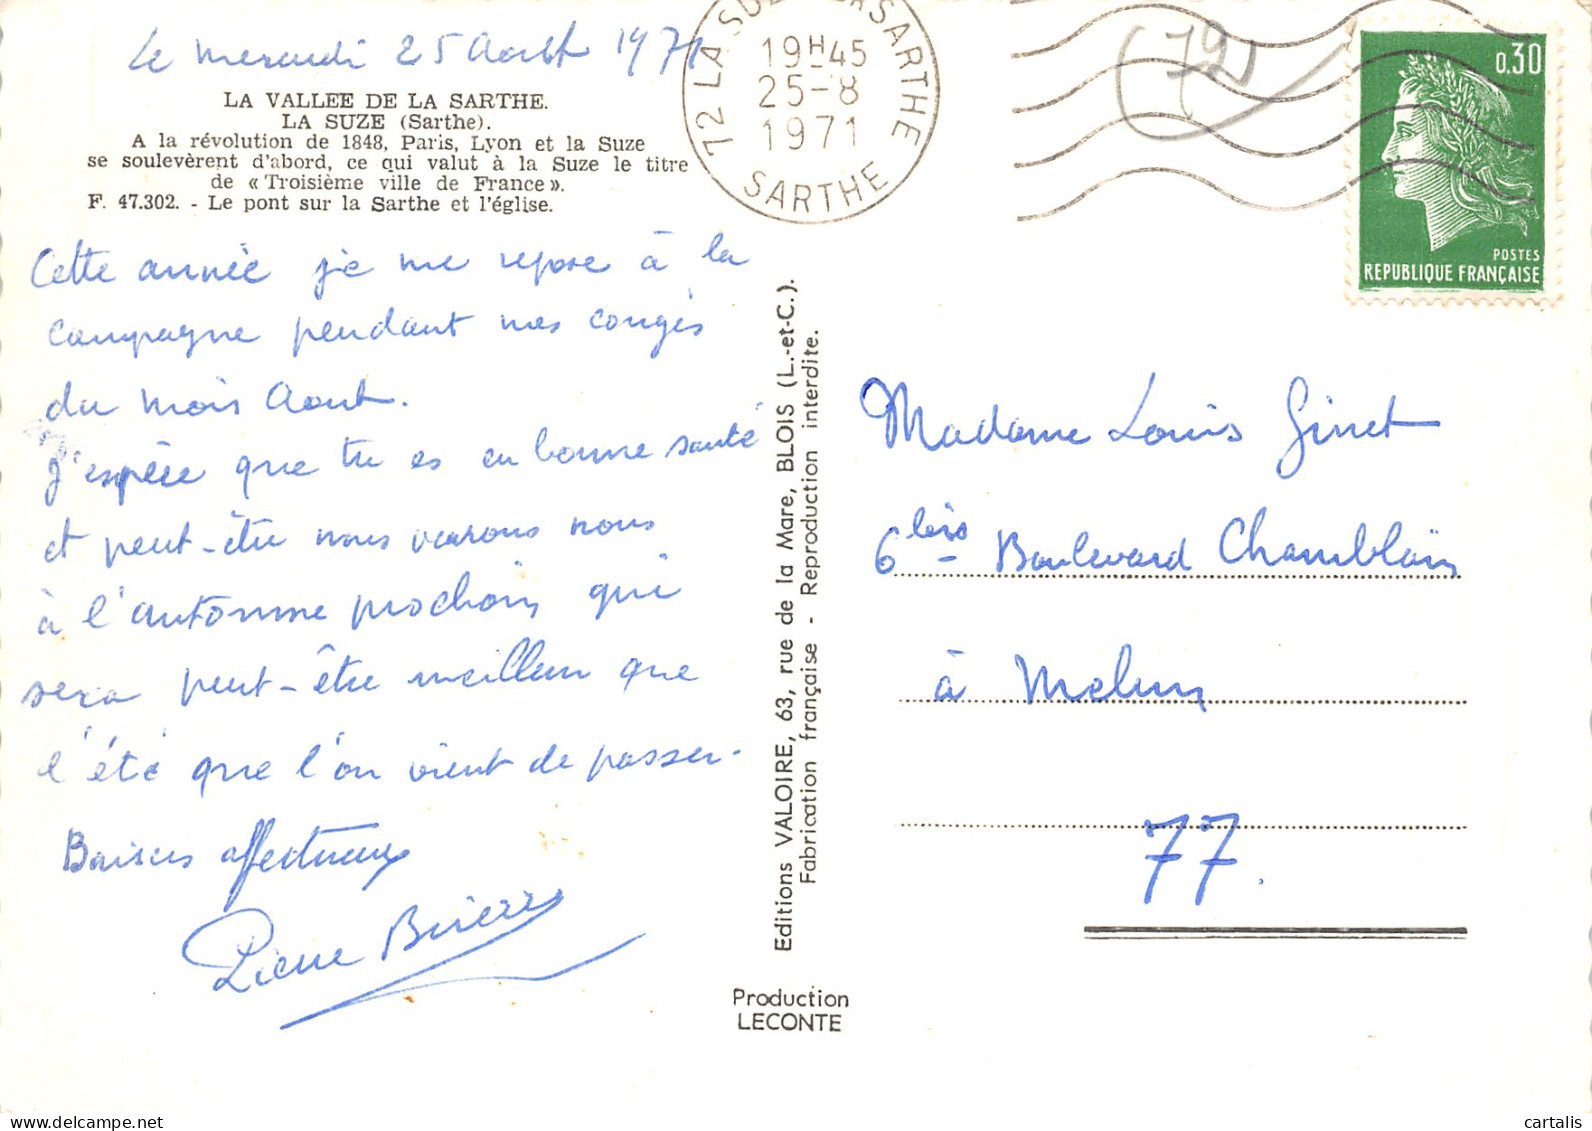 Le mercredi 25 Août 1971
LA VALLEE DE LA SARTHE.
LA SUZE (Sarthe).
A la révolution de 1848, Paris, Lyon et la Suze
se soulevèrent d'abord, ce qui valut à la Suze le titre
de « Troisième ville de France ».
F. 47.302. - Le pont sur la Sarthe et l'église.
Cette année je me repose à la
campagne pendant mes congés
du mois Aout.
J'espère que tu es en bonne santé
et peut-être nous verrons nous
à l'automne prochain qui
sera peut-être meilleur que
l'été que l'on vient de passer.
Baisers affectueux
Pierre
72 LA SUZE SUR SARTHE
19H45
25-8
1971
SARTHE
(72)
0,30
POSTES
REPUBLIQUE FRANÇAISE
Editions VALOIRE, 63, rue de la Mare, BLOIS (L.-et-C.).
Fabrication française - Reproduction interdite.
Production
LECONTE
Madame Louis Ginet
6 bis Boulevard Chamblain
à Melun
77.
cartalis